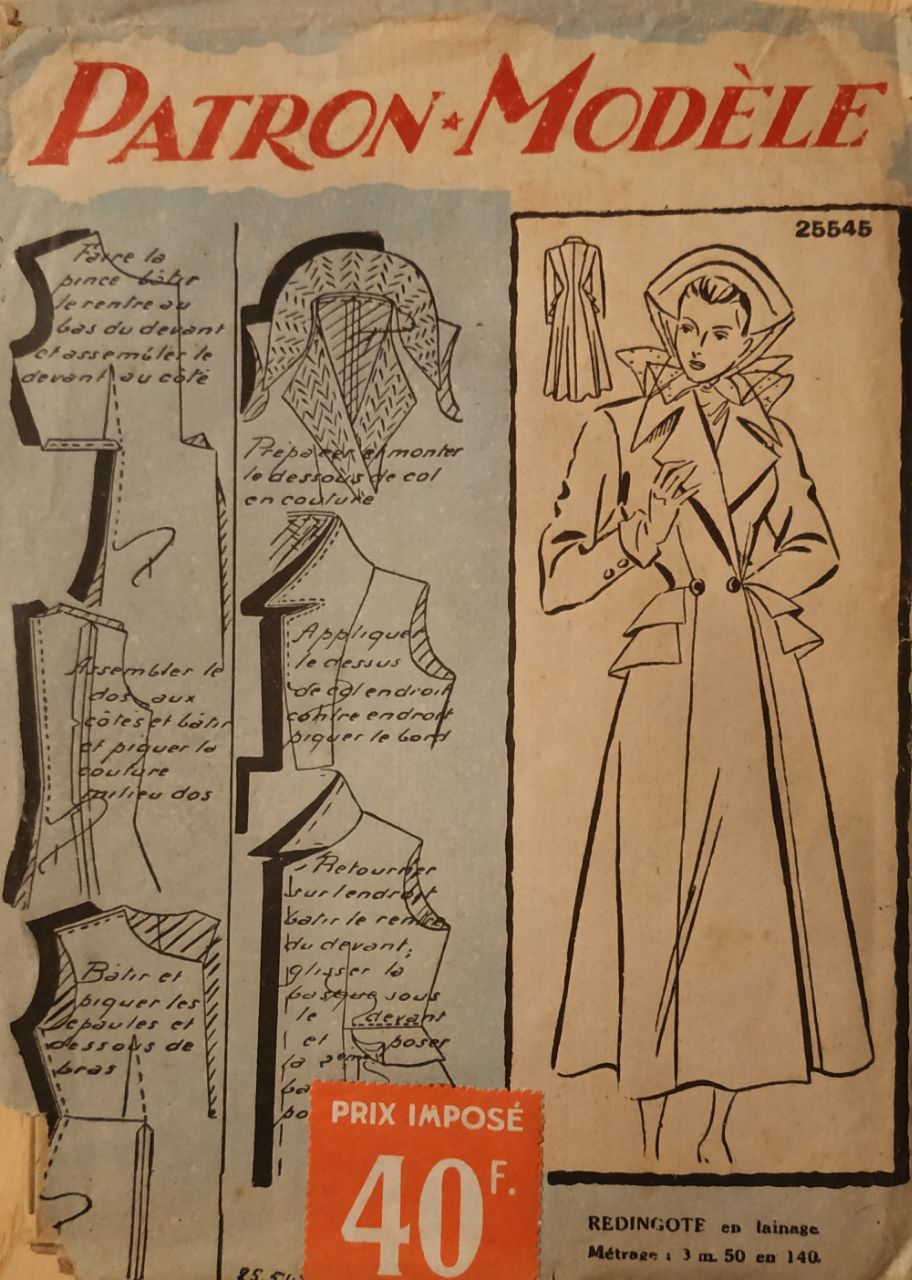 PATRON★MODÈLE
Faire la
pince bâtir
le rentre au
bas du devant
et assembler le
devant au coté
Assembler le
dos aux
côtés et bâtir
et piquer la
couture
milieu dos
Bâtir et
piquer les
epaules et
dessous de
bras
Préparer et monter
le dessous de col
en couture
Appliquer
le dessus
de col endroit
contre endroit
piquer le bord
Retourner
sur lendroit
batir le rentre
du devant,
glisser la
basque sous
le devant
et poser
la 2eme
25545
REDINGOTE en lainage
Métrage : 3 m. 50 en 140.
PRIX IMPOSÉ
40F.